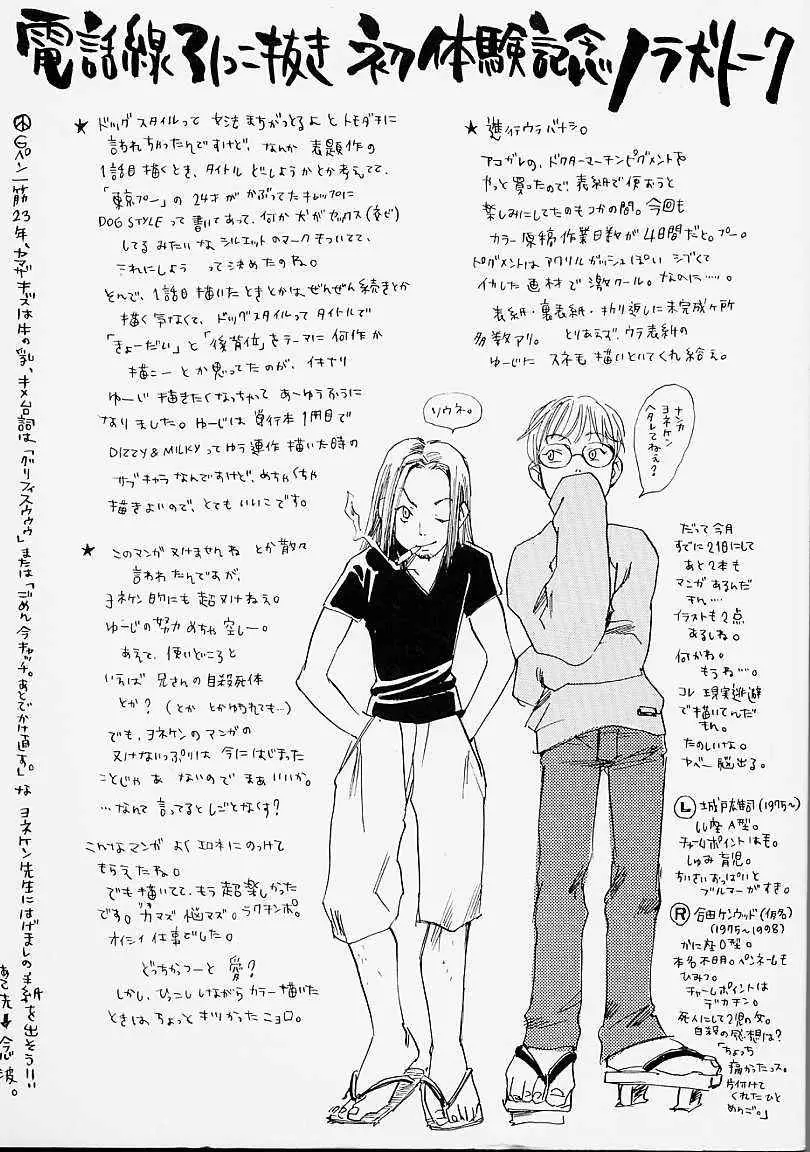 電話線引っこ抜き 初体験記念ノラ犬トーク
★ 進行ウラバナシ。
アコガレの、ドクターマーチンピグメントを
やっと買ったので、表紙で使おうと
楽しみにしてたのもつかの間。今回も
カラー原稿作業日数が4日間だと。プー。
ピグメントはアクリルガッシュぽい シブくて
イカした画材で激クール。なのに……。
表紙・裏表紙・折り返しに未完成ヶ所
多数アリ。 とりあえず、ウラ表紙の
ゆーじに スネ毛 描いといてくれ給え。
★ ドッグスタイルって 文法まちがっとるよ とトモダチに
言われちゃったんですけど、なんか 表題作の
1話目描くとき、タイトル どしようかとか考えてて、
「東京プー」の 24才が かぶってたキャップに
DOG STYLEって書いてあって、何か犬がセックス(交ビ)
してるみたいな シルエットのマークもついてて、
これにしよう って決めたのね。
とんで、1話目描いたときとかは、ぜんぜん続きとか
描く気なくて、ドッグスタイルってタイトルで
「きょーだい」と「後背位」をテーマに何作か
描こー とか思ってたのが、イキナリ
ゆーじ 描きたくなっちゃって あーゆうふうに
なりました。ゆーじは単行本1冊目で
DIZZY & MILKYってゆう連作 描いた時の
サブキャラなんですけど、めちゃくちゃ
描きよいので、とてもいいこです。
★ このマンガ ヌけませんね とか散々
言われたんですが、
ヨネケン的にも 超ヌけねえ。
ゆーじの努力めちゃ空しー。
あえて、使いどころと
いえば 兄さんの自殺死体
とか? (とか とかゆられても…)
でも、ヨネケンのマンガの
ヌけないっぷりは 今にはじまった
ことじゃあ ないので まあいいか。
…なんて 言ってるとしごとなくす?
こんなマンガ よく エロネにのっけて
もらえたね。
でも描いてて、もう超楽しかった
です。ガマズ 悩マズ。ラクチンポ。
オイシイ仕事でした。
どっちかつーと 愛?
しかし、ひっこししながらカラー描いた
ときは、ちょっと キツかったニョロ。
Gペン一筋23年、ヤマザキズは牛の乳、キメ台詞は、「グリフィスウゥゥ」または「ごめん今キャッチ。あとでかけ直す。」な ヨネケン先生にはげましの手紙を出そう!!
あて先→ 念波。
ソウネ。
ナンカ
ヨネケン
ヘタレてねえ?
だって今月
すでに21日にして
あと2本も
マンガあるんだ
もん…
イラストも2点
あるしね。
何かね。
もうね…。
コレ 現実逃避
で描いてんだ
もん。
たのしいな。
ヤベー 脳出る。
Ⓛ 城戸雄司(1975〜)
しし座A型。
チャームポイントは毛。
しゅみ育児。
ちいさいおっぱいと
ブルマーがすき。
Ⓡ 合田ケンウッド(仮名)
(1975〜1998)
かに座O型。
本名不明。ペンネームも
ひみつ。
チャームポイントは
デカチン。
死人にして2児の父。
自殺の感想は?
「ちょっち
痛かったっス。
片付けて
くれたひと
めんご。」